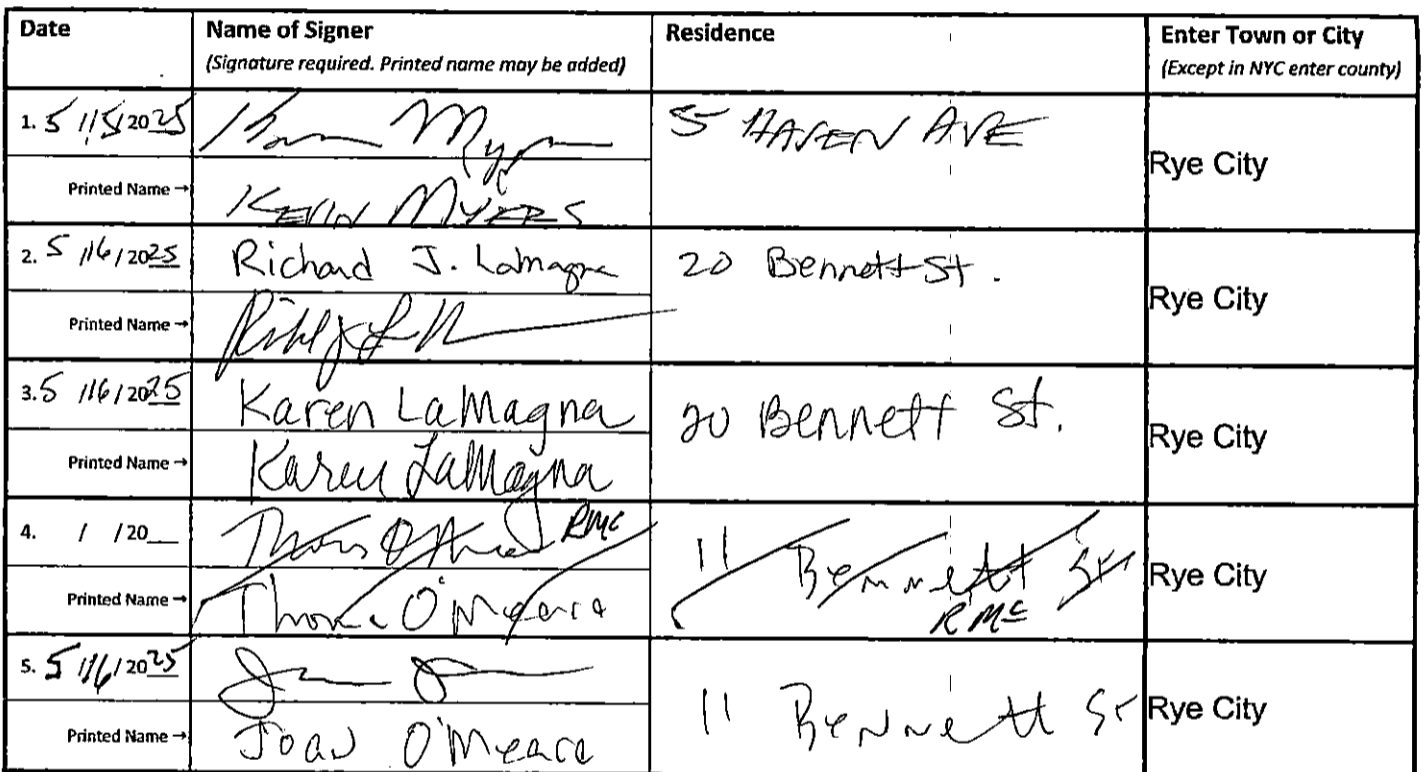 Date Name of Signer Residence Enter Town or City
(Signature required. Printed name may be added) (Except in NYC enter county)
1. 5 / 15 / 2025 5 HAVEN AVE Rye City
Printed Name → KEVIN MYERS
2. 5 / 16 / 2025 Richard J. Lamagna 20 Bennett St. Rye City
Printed Name →
3. 5 / 16 / 2025 Karen LaMagna 20 Bennett St. Rye City
Printed Name → Karen LaMagna
4. / / 20__ RMC 11 Bennett St Rye City
Printed Name → Thomas O'Meara RMC
5. 5 / 16 / 2025 11 Bennett St Rye City
Printed Name → Joan O'Meara